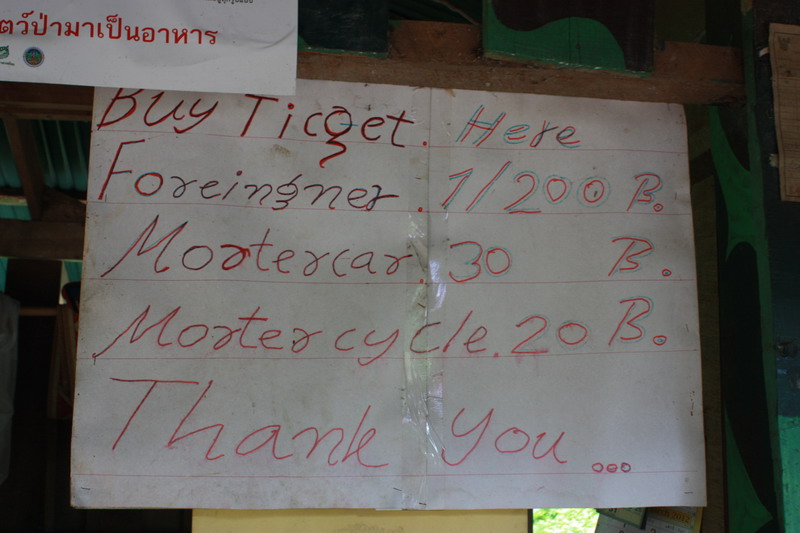 ตว์ป่ามาเป็นอาหาร
Buy Ticget. Here
Foreingner. 1/200 B.
Mortercar. 30 B.
Mortercycle. 20 B.
Thank you...